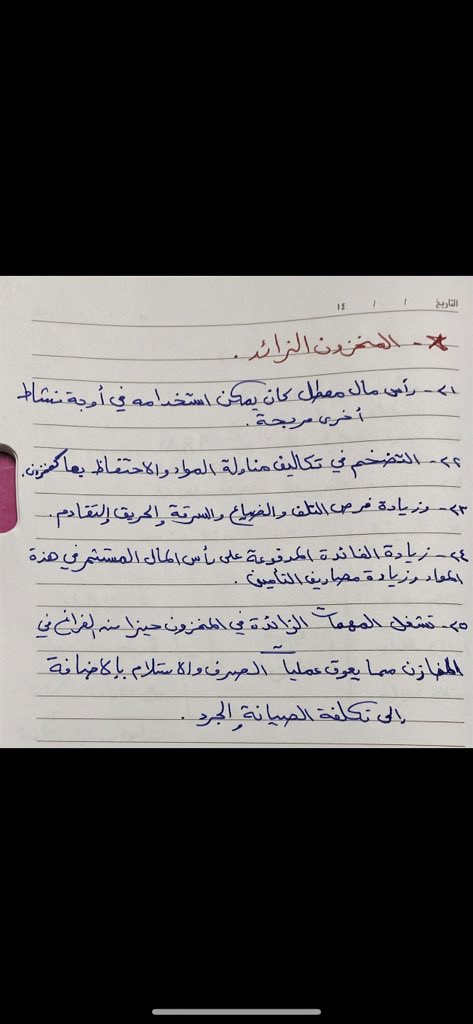 التاريخ / / ١٤
* - المخزون الزائد .
١ - رأس مال معطل كان يمكن استخدامه في أوجة نشاط
أخرى مربحة .
٢ - التضخم في تكاليف مناولة المواد والاحتفاظ بها كمخزون .
٣ - وزيادة فرص التلف والضياع والسرقة والحريق والتقادم .
٤ - زيادة الفائدة المدفوعة على رأس المال المستثمر في هذة
المواد وزيادة مصاريف التأمين .
٥ - تشغل المهمات الزائدة في المخزون حيزا من الفراغ في
المخازن مما يعوق عمليات الصرف والاستلام بالإضافة
إلى تكلفة الصيانة والجرد .